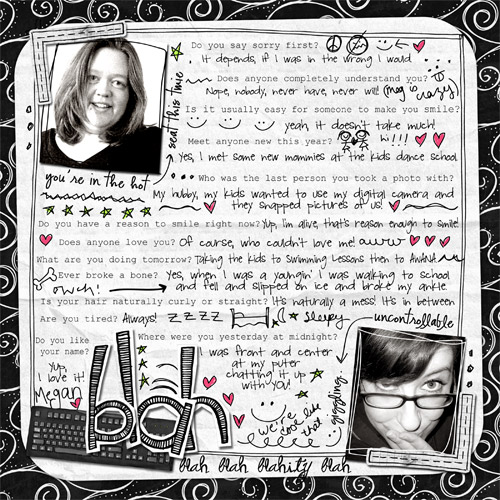 Do you say sorry first?
it depends, if I was in the wrong I would
Does anyone completely understand you?
Nope, nobody, never have, never will! (meg is crazy)
Is it usually easy for someone to make you smile?
yeah, it doesn't take much!
Meet anyone new this year? hi!!!
Yes, I met some new mommies at the kids dance school
seat this time
you're in the hot
Who was the last person you took a photo with?
My hubby, my kids wanted to use my digital camera and
they snapped pictures of us!
Do you have a reason to smile right now? Yup, I'm alive, that's reason enough to smile!
Does anyone love you? Of course, who couldn't love me! awww
What are you doing tomorrow? Taking the kids to Swimming Lessons then to AWANA
Ever broke a bone? Yes, when I was a youngin' I was walking to school
ouch! and fell and slipped on ice and broke my ankle
Is your hair naturally curly or straight? It's naturally a mess! It's in between
Are you tired? Always! z z z z sleepy uncontrollable
Do you like your name?
Yup, I love it!
Megan
Where were you yesterday at midnight?
I was front and center
at my puter
chatting it up
with you!
giggling
we're
cool like
that
blah
blah blah blahity blah